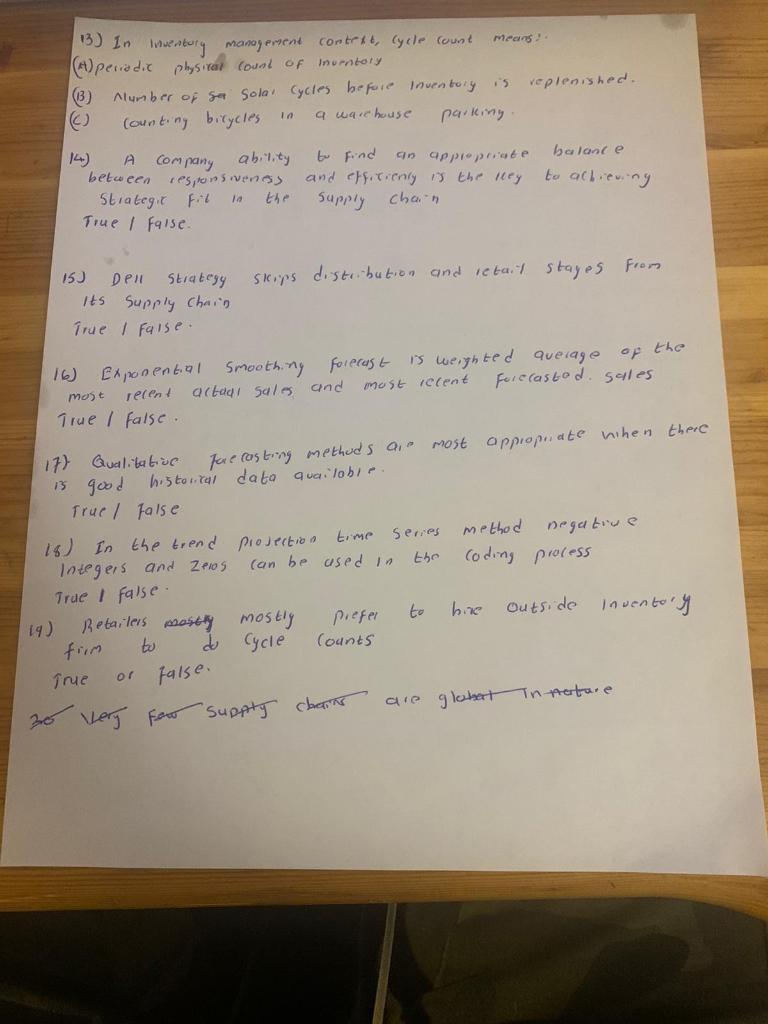 13) In Inventory management context, Cycle Count means:
(A) periodic physical Count of Inventory
(B) Number of Solar Cycles before Inventory is replenished.
(C) Counting bicycles in a warehouse parking.
14) A Company ability to find an appropriate balance
between responsiveness and efficienly is the key to achieving
Strategic fit in the Supply Chain
True / False.
15) Dell Strategy skips distribution and retail stages from
its Supply Chain
True / False.
16) Exponential Smoothing forecast is weighted average of the
most recent actual sales and most recent forecasted. sales
True / False.
17) Qualitative forecasting methods are most appropriate when there
is good historical data available.
True / False
18) In the trend projection time series method negative
Integers and Zeros can be used in the Coding process
True / False.
19) Retailers mostly mostly prefer to hire Outside Inventory
firm to do Cycle Counts
True or False.
20 Very Few Supply chains are global In nature